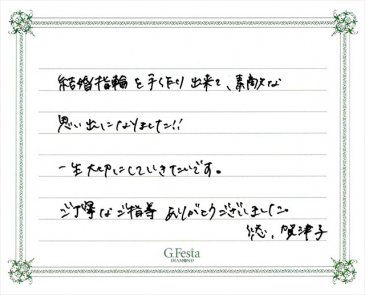 結婚指輪を手作り出来て、素敵な
思い出になりました!!
一生大切にしていきたいです。
ご丁寧なご指導 ありがとうございました。
賀津子
G.Festa
DIAMOND